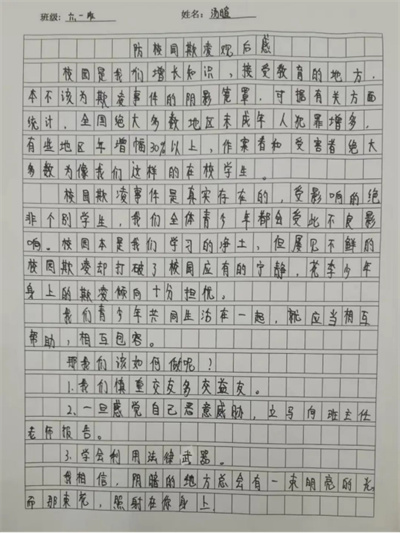 班级: 六.一班 姓名: 汤暄
防校园欺凌观后感
校园是我们增长知识,接受教育的地方,
本不该为欺凌事件的阴影笼罩,可据有关方面
统计,全国绝大多数地区未成年人犯罪增多,
有些地区年增幅30%以上,作案者和受害者绝大
多数为像我们这样的在校学生。
校园欺凌事件是真实存在的,受影响的绝
非个别学生,我们全体青少年都会受此不良影
响。校园本是我们学习的净土,但屡见不鲜的
校园欺凌却打破了校园应有的宁静,花季少年
身上的欺凌倾向十分担忧。
我们青少年共同生活在一起,就应当相互
帮助,相互包容。
我们该如何做呢?
1.我们慎重交友多交益友。
2、一旦感觉自己恶意威胁,立马向班主任
老师报告。
3.学会利用法律武器。
我相信,阴暗的地方总会有一束明亮的光
而那束光,照射在你身上。